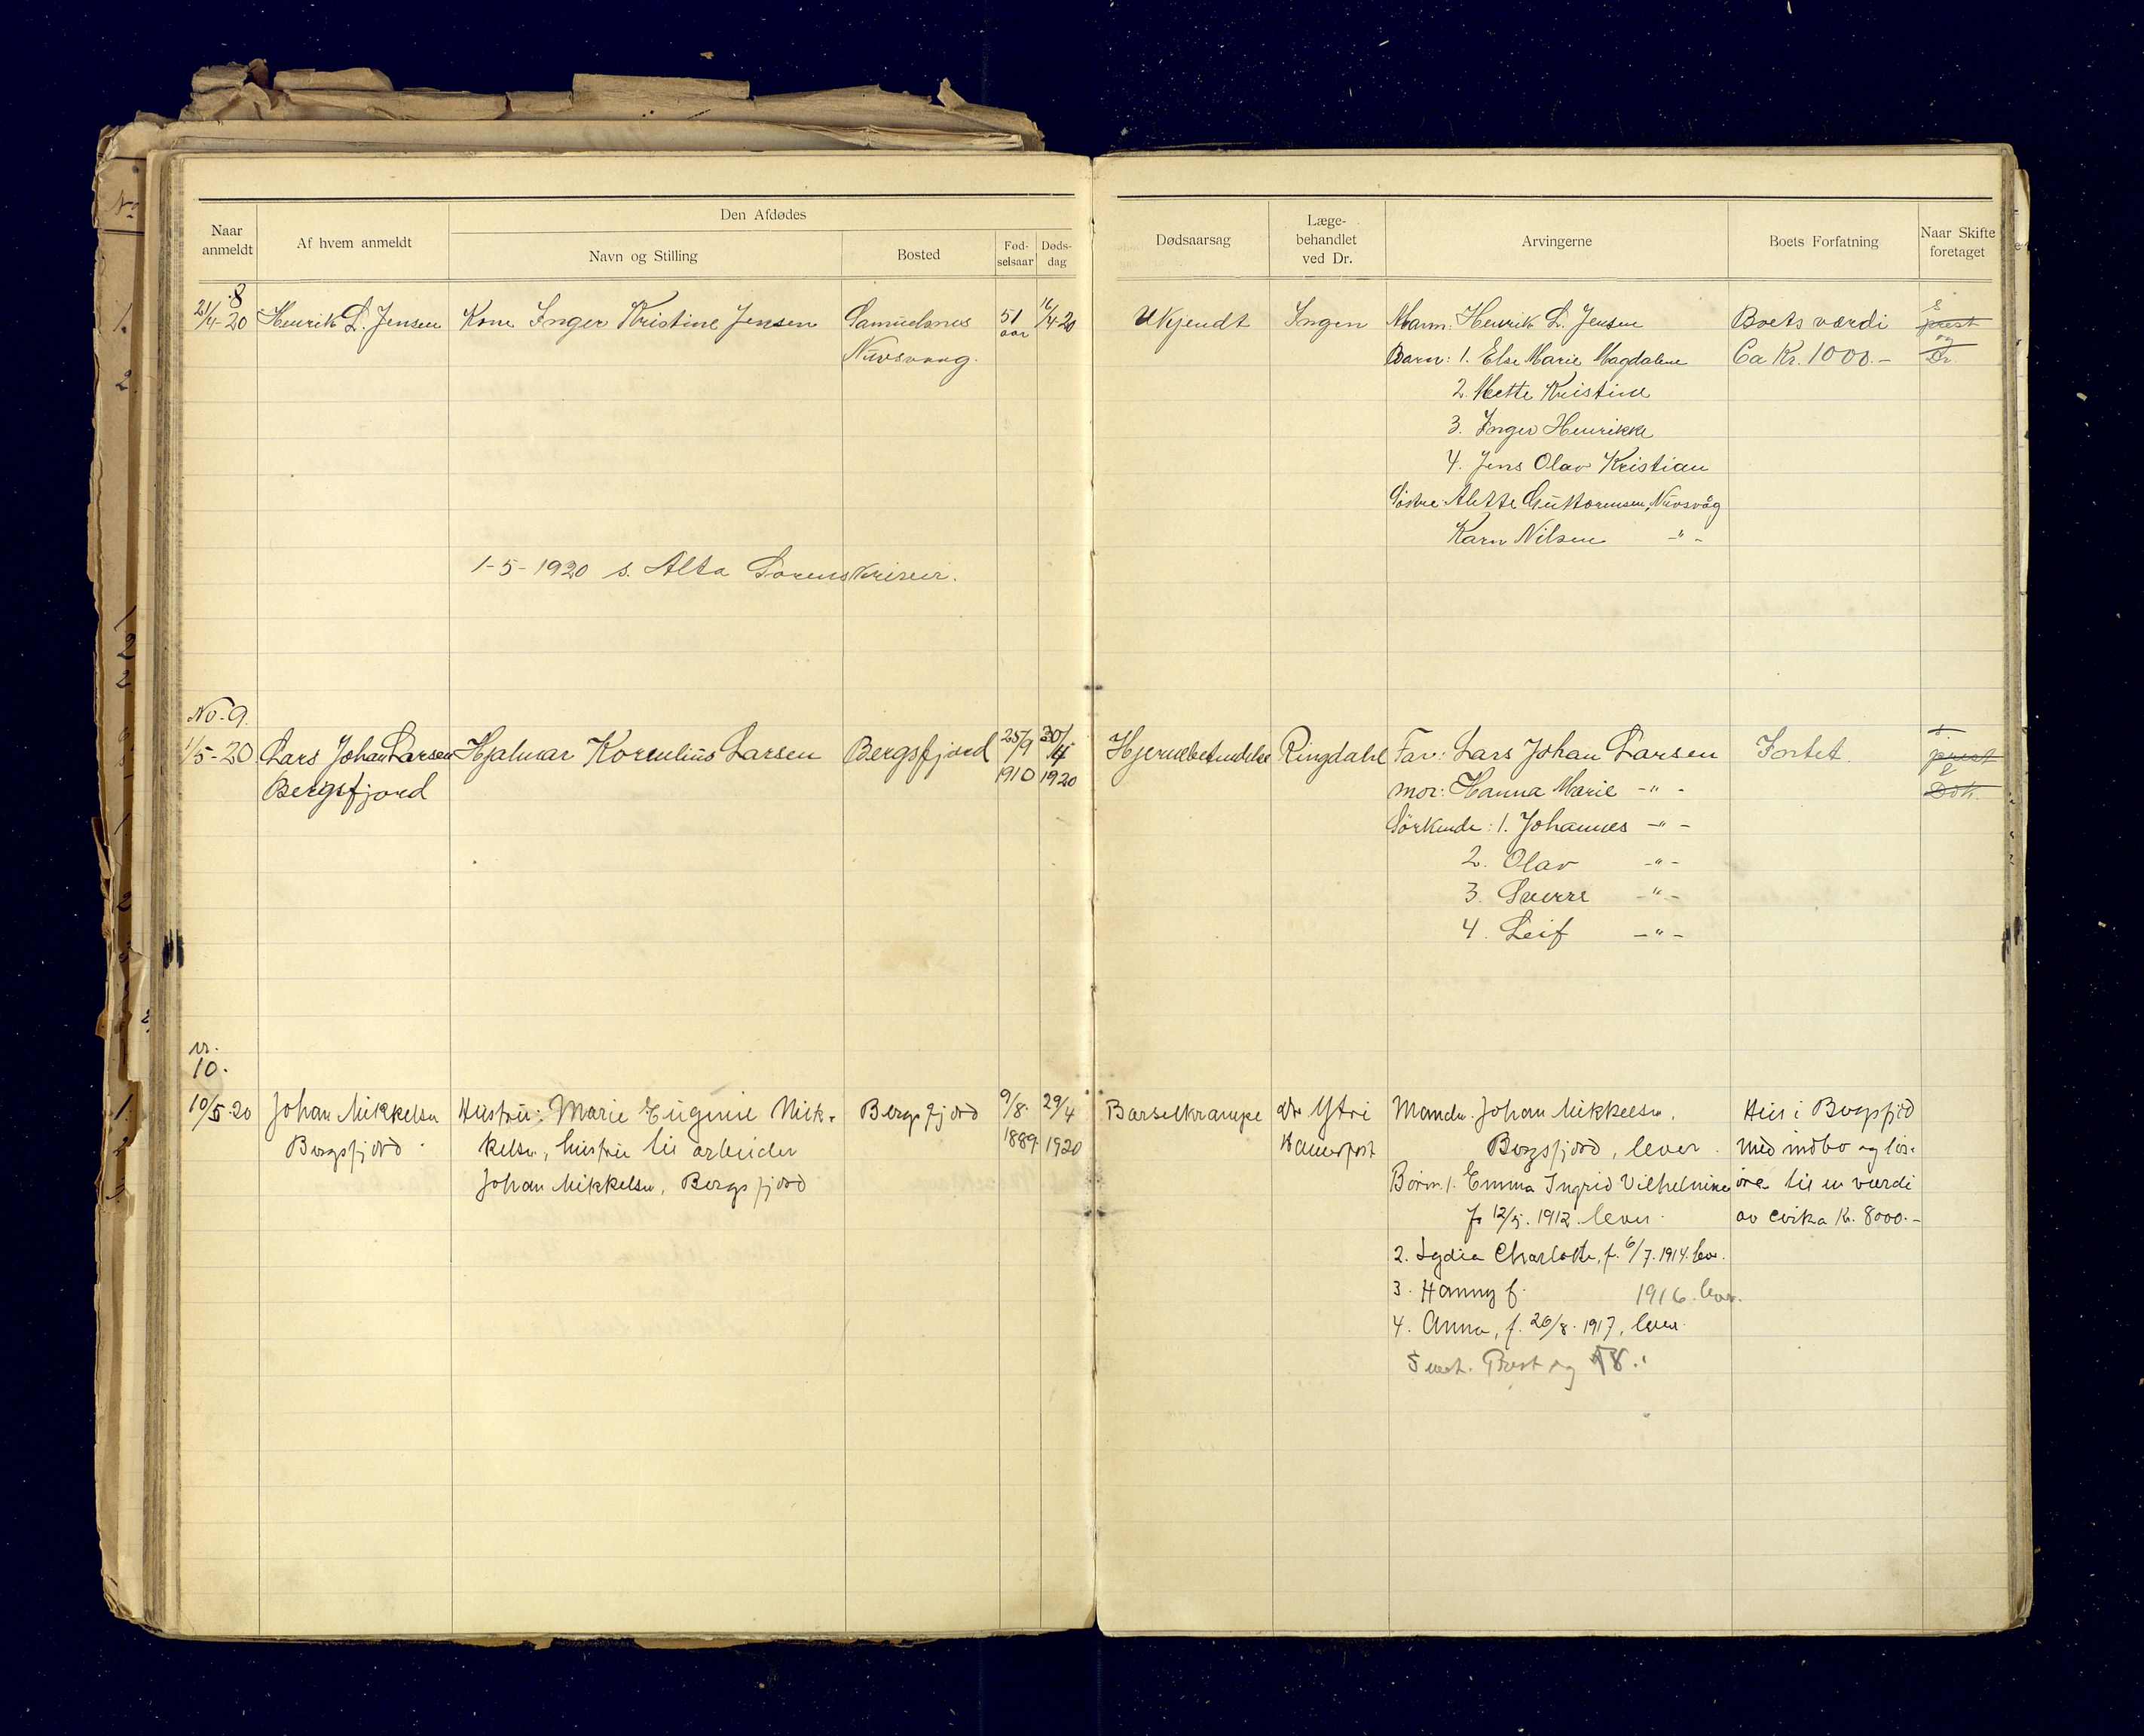 Naar anmeldt
Af hvem anmeldt
Den Afdødes
Navn og Stilling
Bosted
Fød-selsaar
Døds-dag
Dødsaarsag
Læge-behandlet ved Dr.
Arvingerne
Boets Forfatning
Naar Skifte foretaget
8
21/4-20 Henrik L. Jensen Kone Inger Kristine Jensen Samuelsnes 51 aar 16/4-20 Ukjendt Ingen Mann: Henrik L. Jensen Boets værdi prest
Nuvsvaag. Barn: 1. Else Marie Magdalene Ca Kr. 1000.- og Dr.
2. Mette Kristine
3. Inger Henrikke
4. Jens Olav Kristian
Søstre: Alette Guttormsen, Nuvsvåg
Karn Nilsen -"-
1-5-1920 s. Alta Sorenskriver.
No. 9.
1/5-20 Lars Johan Larsen Hjalmar Kornelius Larsen Bergsfjord 25/9 1910 30/4 1920 Hjernebetendelse Ringdahl Far: Lars Johan Larsen Fortet. prest
Bergsfjord mor: Hanna Marie -"- & Dok.
Sörkende: 1. Johannes -"-
2. Olav -"-
3. Sverre -"-
4. Leif -"-
nr.
10.
10/5-20 Johan Mikkelsen Hustru: Marie Eugenie Mik- Bergsfjord 9/8. 1889 29/4 1920 Barselkrampe Dr. Ytri Manden Johan Mikkelsen, Hus i Bergsfjord
Bergsfjord kelsen, hustru til arbeider Hamerfest Bergsfjord, lever. med indbo og lös-
Johan Mikkelsen, Bergsfjord Börn 1. Emma Ingrid Vilhelmine öre til en værdi
f. 12/5. 1912. lever. av cirka Kr. 8000.-
2. Lydia Charlotte, f. 6/7. 1914. lev.
3. Hanny f. 1916. lev.
4. Anna, f. 26/8. 1917, lever.
Prest og